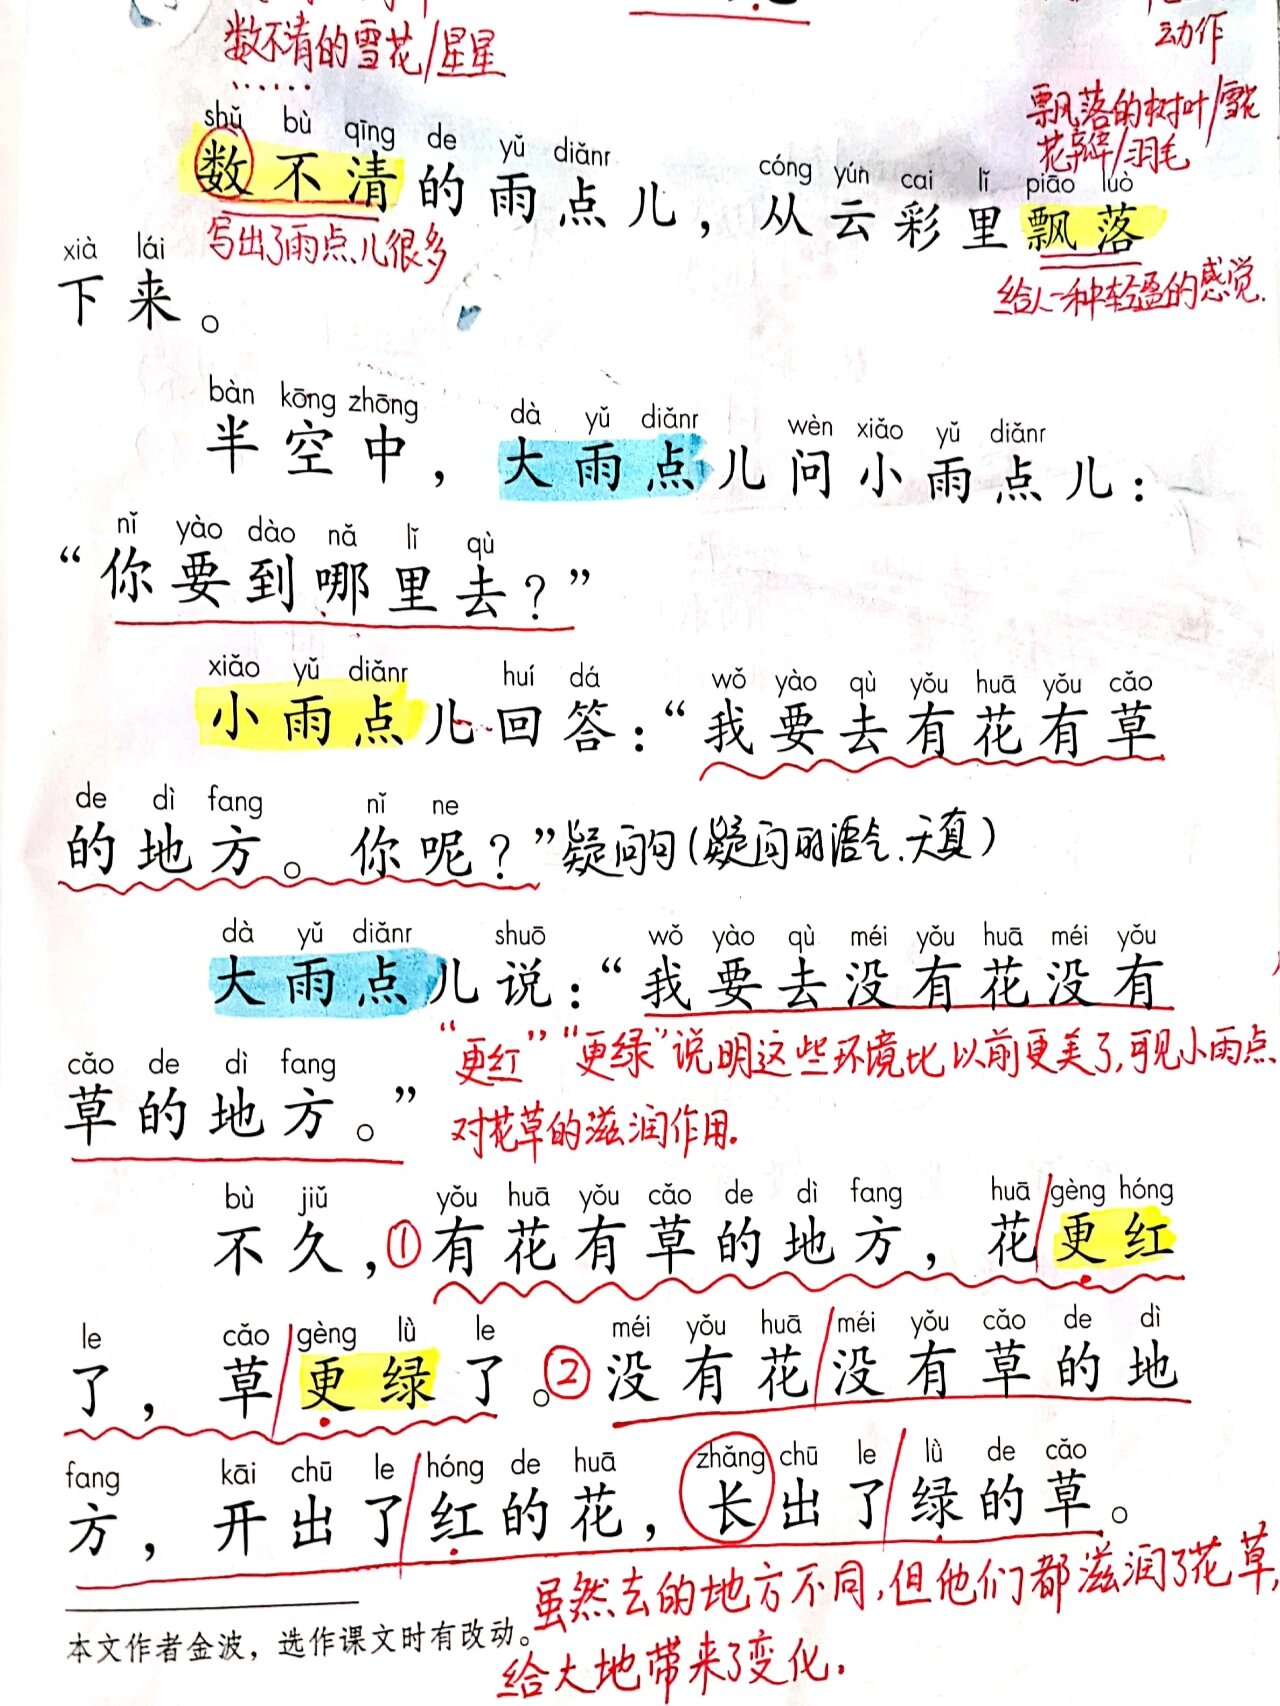 数不清的雪花/星星
动作
飘落的树叶/雪花
花瓣/羽毛
shǔ bù qīng de yǔ diǎnr cóng yún cai lǐ piāo luò
数不清的雨点儿，从云彩里飘落
写出了雨点儿很多
给人一种轻盈的感觉.
xià lái
下来。
bàn kōng zhōng dà yǔ diǎnr wèn xiǎo yǔ diǎnr
半空中，大雨点儿问小雨点儿：
nǐ yào dào nǎ lǐ qù
“你要到哪里去？”
xiǎo yǔ diǎnr huí dá wǒ yào qù yǒu huā yǒu cǎo
小雨点儿回答：“我要去有花有草
de dì fang nǐ ne
的地方。你呢？”疑问句(疑问的语气.天真)
dà yǔ diǎnr shuō wǒ yào qù méi yǒu huā méi yǒu
大雨点儿说：“我要去没有花没有
“更红”“更绿”说明这些环境比以前更美了,可见小雨点
cǎo de dì fang
草的地方。”
对花草的滋润作用.
bù jiǔ yǒu huā yǒu cǎo de dì fang huā gèng hóng
不久，①有花有草的地方，花/更红
le cǎo gèng lǜ le méi yǒu huā méi yǒu cǎo de dì
了，草/更绿了。②没有花/没有草的地
fang kāi chū le hóng de huā zhǎng chū le lǜ de cǎo
方，开出了/红的花，长出了/绿的草。
虽然去的地方不同,但他们都滋润了花草,
本文作者金波，选作课文时有改动。
给大地带来了变化.